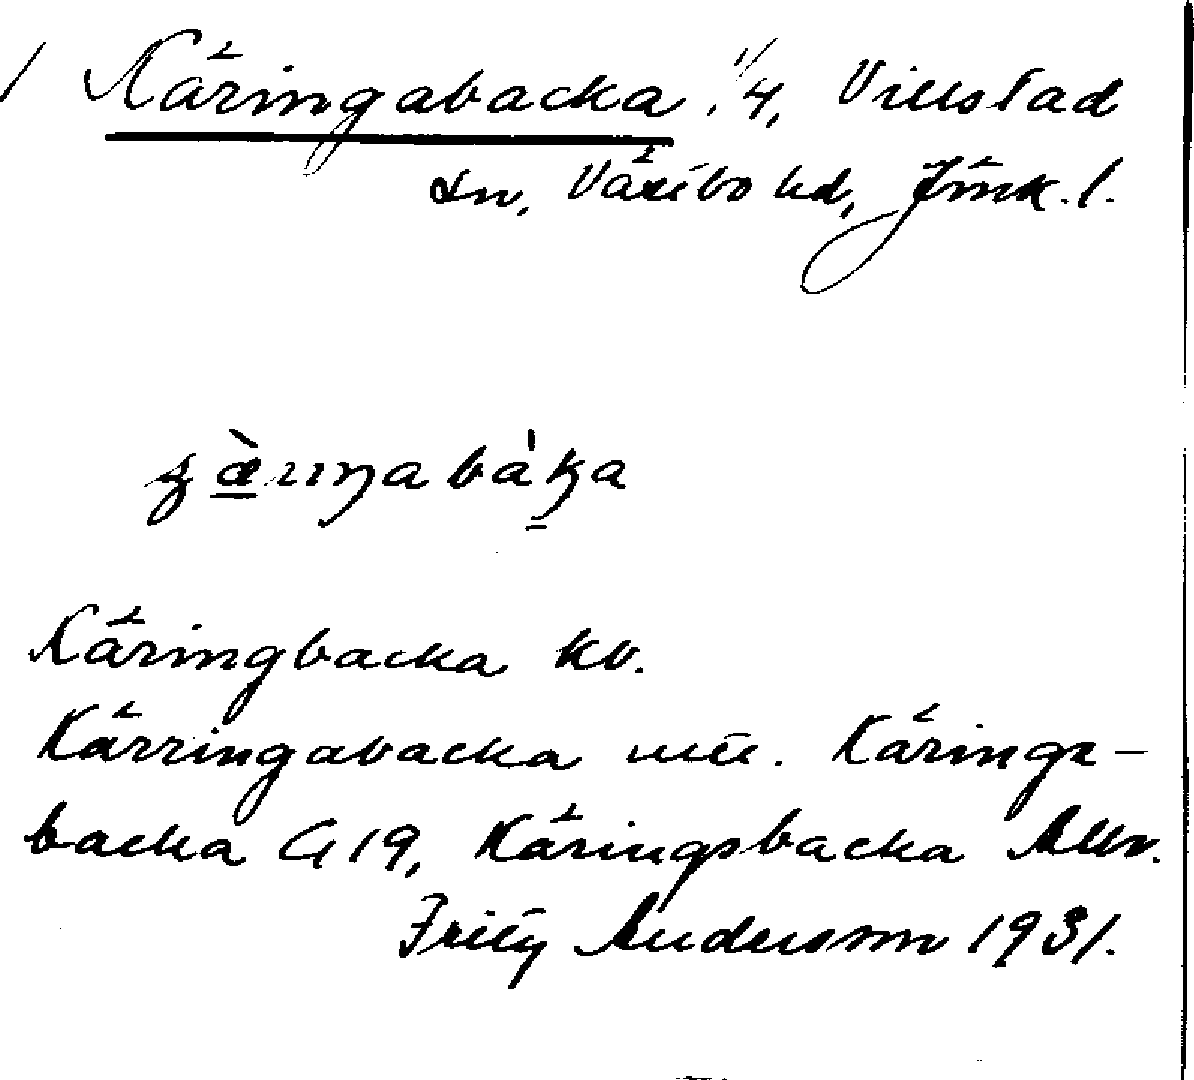 Käringabacka 1/4, Villstad
sn, Västbo hd, Jönk. l.
Käringbacka kv.
Kärringabacka mtl. Käringa-
backa G 19, Käringsbacka Allm.
Fritz Andersson 1931.